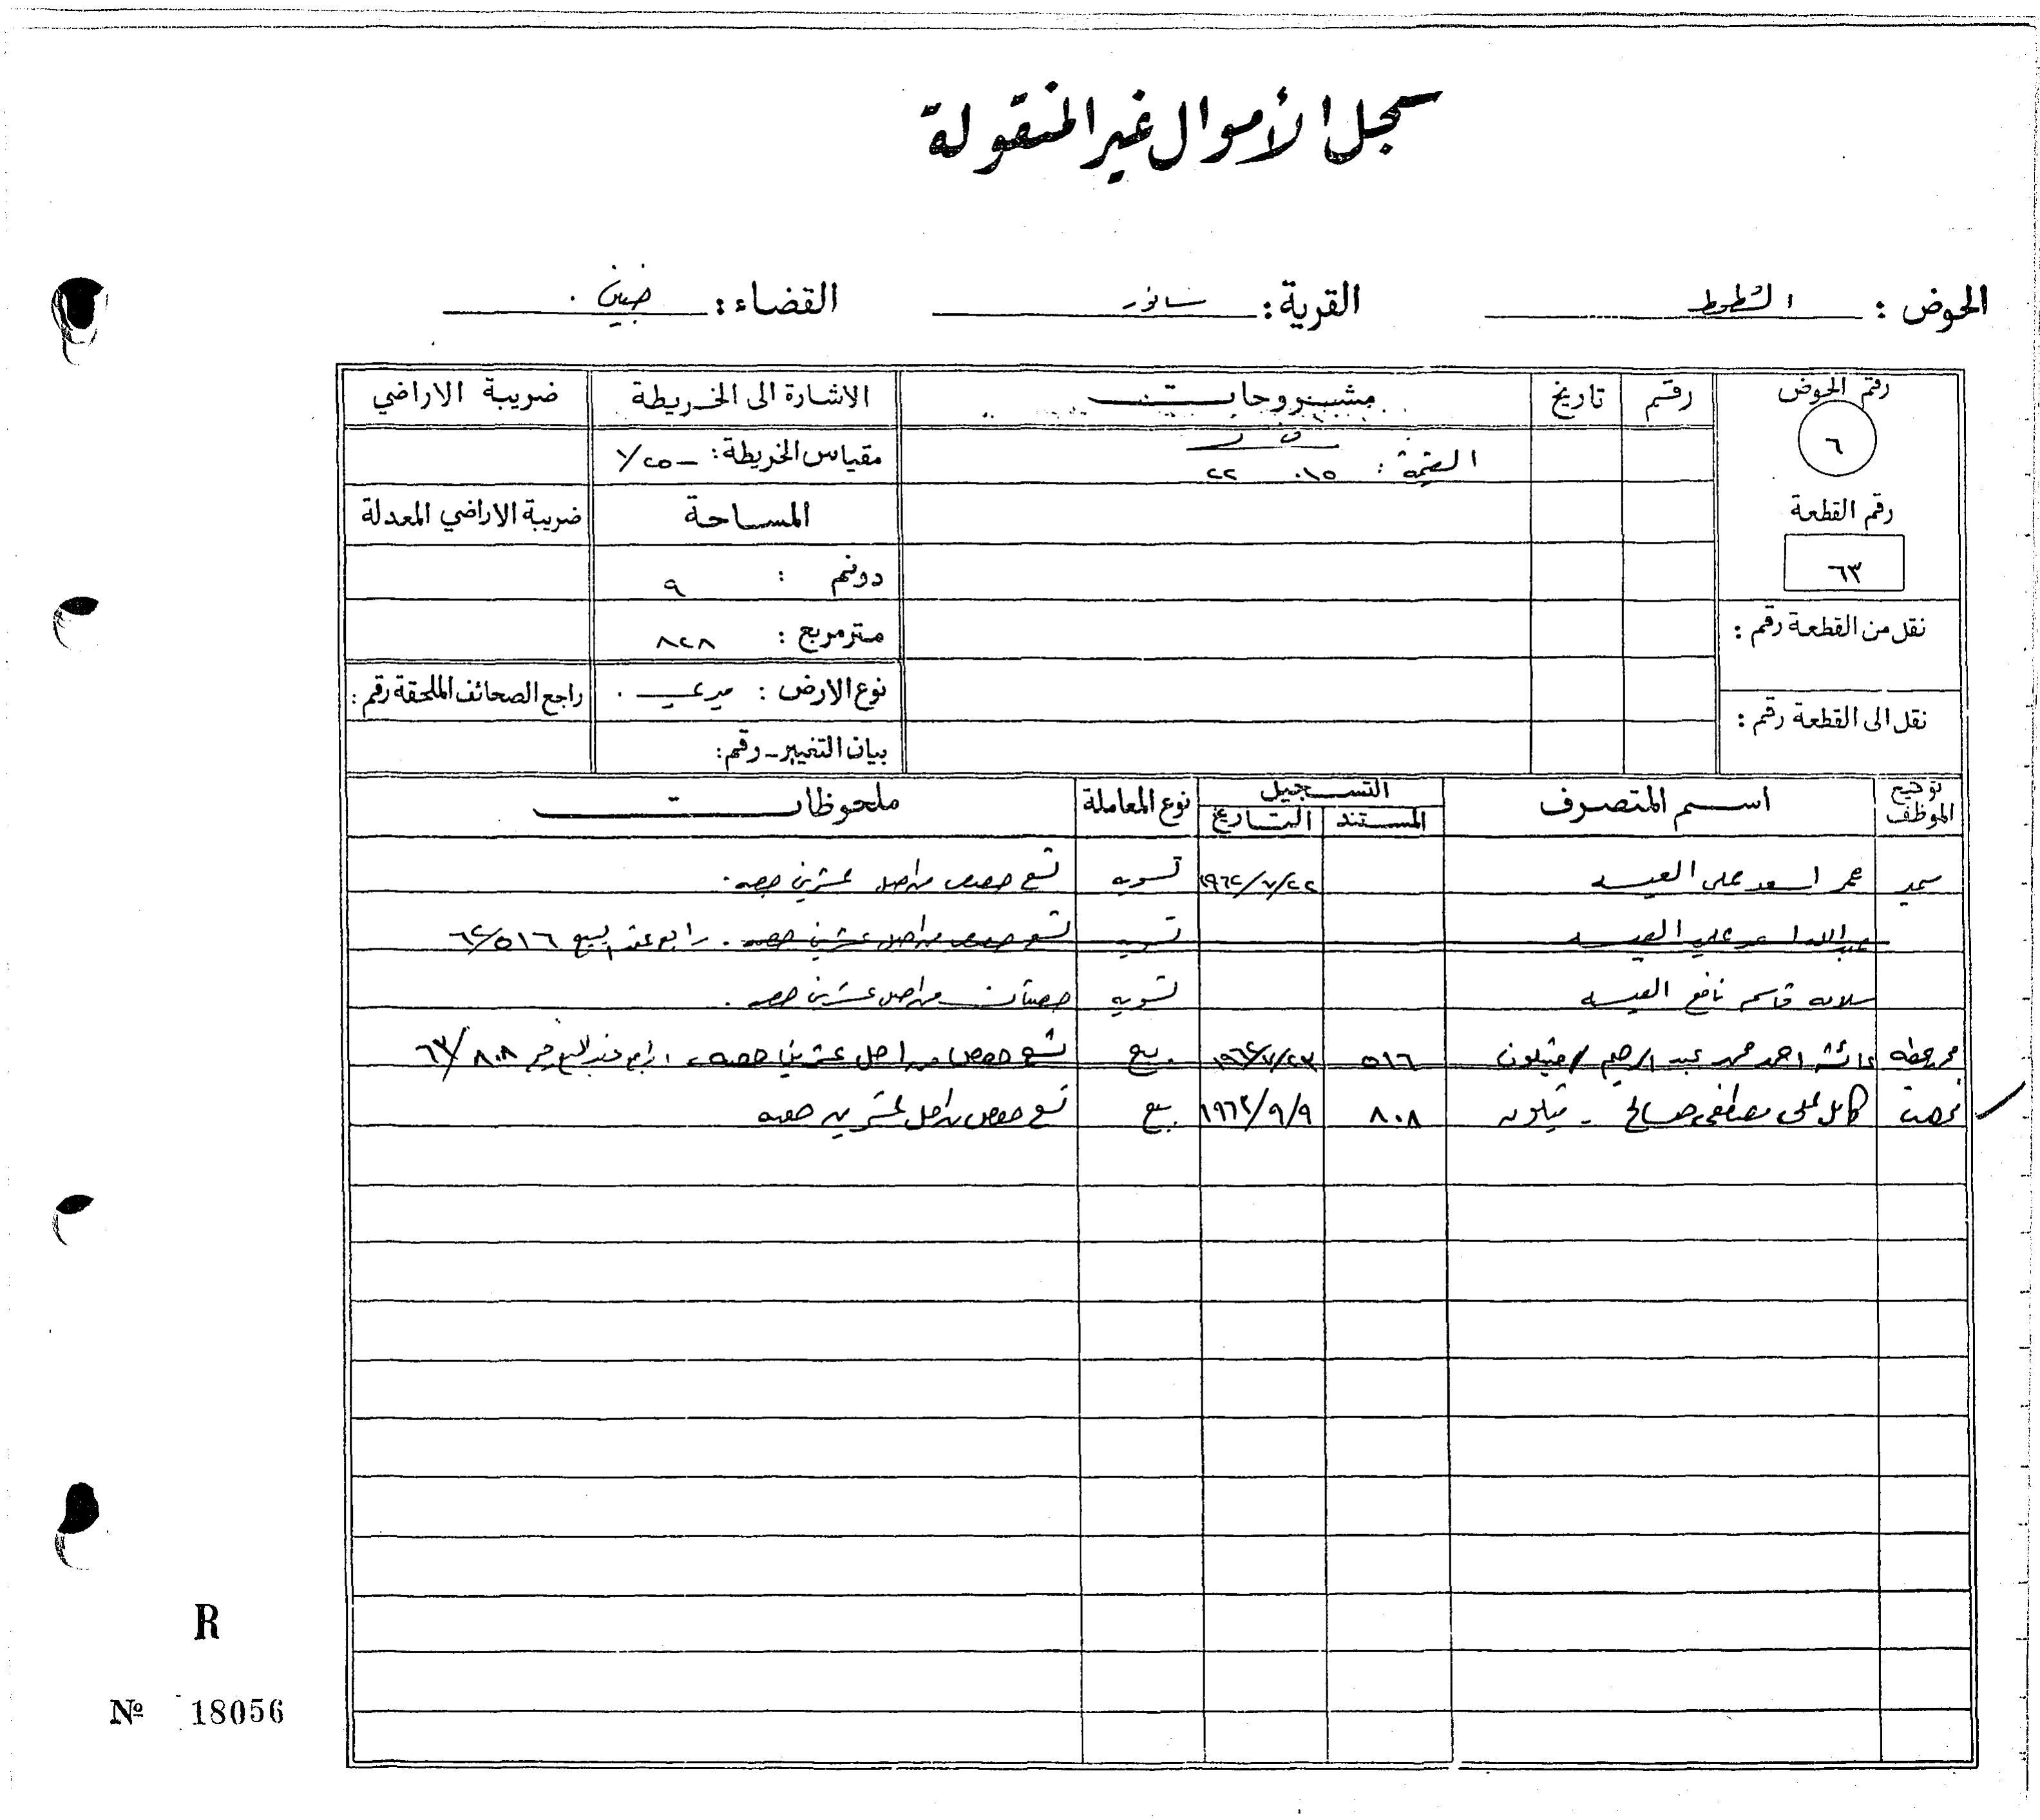 سجل الأموال غير المنقولة
الحوض : الشطوط القرية : سانور القضاء : جنين .
رقم الحوض رقم تاريخ مشروحات الاشارة الى الخريطة ضريبة الاراضي
٦ القيمة : ٠١٥ ٢٢ مقياس الخريطة : ١/٢٥٠٠
رقم القطعة المساحة ضريبة الاراضي المعدلة
٦٣ دونم : ٩
نقل من القطعة رقم : متر مربع : ٨٢٨
نوع الارض : ميري . راجع الصحائف الملحقة رقم :
نقل الى القطعة رقم : بيان التغيير - رقم :
توقيع الموظف اسم المتصرف التسجيل نوع المعاملة ملحوظات
المستند التاريخ
سمير عمر اسعد علي العيسه ١٩٦٢/٧/٢٢ تسويه تسع حصص من اصل عشرين حصه .
عبدالله اسعد علي العيسه تسويه تسع حصص من اصل عشرين حصه . راجع عقد البيع ٦٢/٥١٦
سلامه قاسم نافع العيسه تسويه حصتان من اصل عشرين حصه .
عائشه احمد محمد عبد الرحيم / ميثلون ٥١٦ ١٩٦٢/٧/٢٣ بيع تسع حصص من اصل عشرين حصه . راجع عقد البيع رقم ٦٣/٨٠٨
كامل علي مصطفى صالح - ميثلون ٨٠٨ ١٩٦٣/٩/٩ بيع تسع حصص من اصل عشرين حصه
R
№ 18056